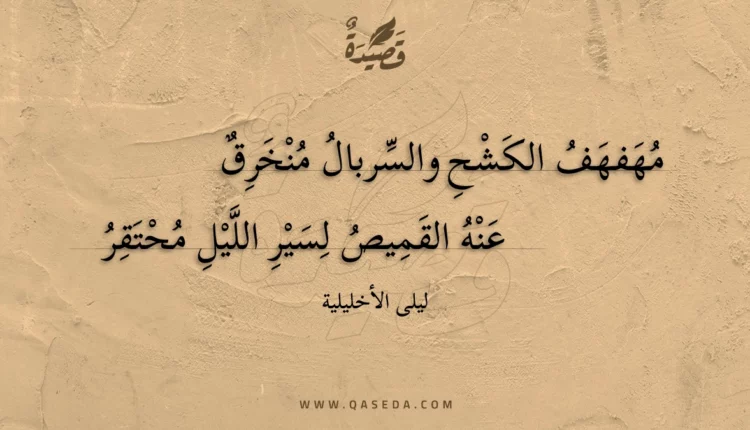 قَصِيدَةٌ
مُهَفهَفُ الكَشْحِ والسِّربالُ مُنْخَرِقٌ
عَنْهُ القَمِيصُ لِسَيْرِ اللَّيْلِ مُحْتَقِرُ
ليلى الأخليلية
WWW.QASEDA.COM